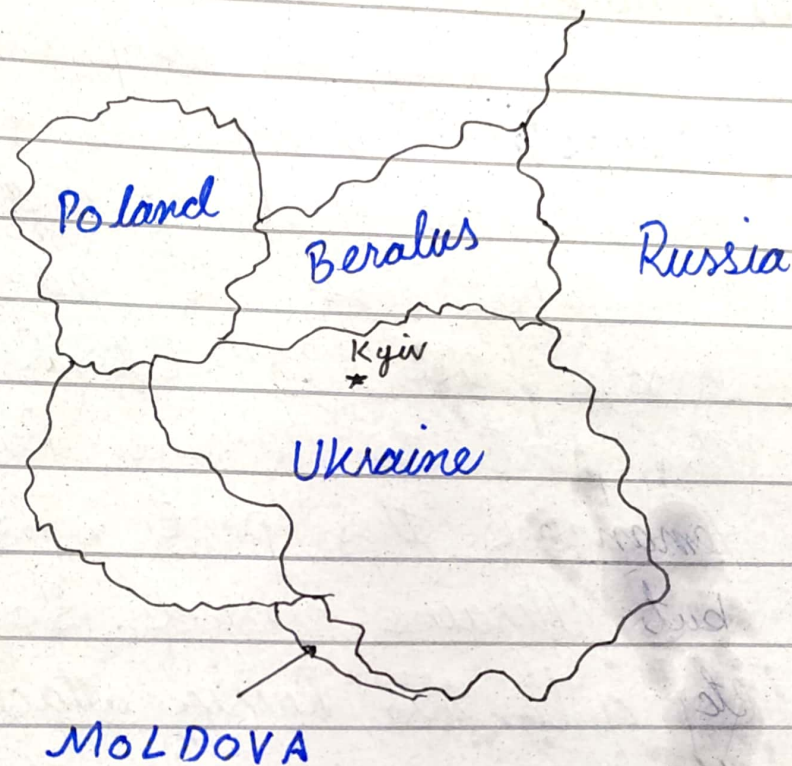 Poland
Beralus
Russia
Kyiv
Ukraine
MOLDOVA